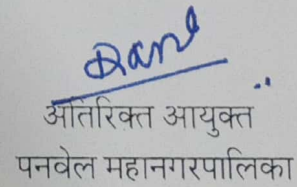 अतिरिक्त आयुक्त
पनवेल महानगरपालिका